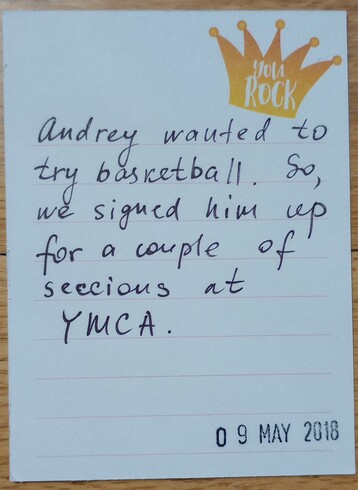 you
ROCK
Andrey wanted to
try basketball. So,
we signed him up
for a couple of
seccious at
YMCA.
0 9 MAY 2018